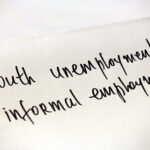 outh unemploymen
informal employm